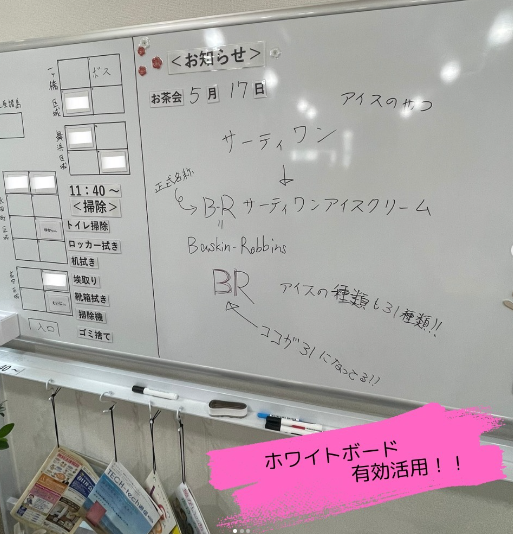 <お知らせ>
お茶会 5月 17日
アイスのやつ
サーティワン
↓
正式名称
→B-R サーティワンアイスクリーム
Baskin-Robbins
BR
アイスの種類も31種類!!
ココが31になってる!!
ボス
11:40～
<掃除>
トイレ掃除
ロッカー拭き
机拭き
埃取り
靴箱拭き
掃除機
ゴミ捨て
入口
ホワイトボード
有効活用！！